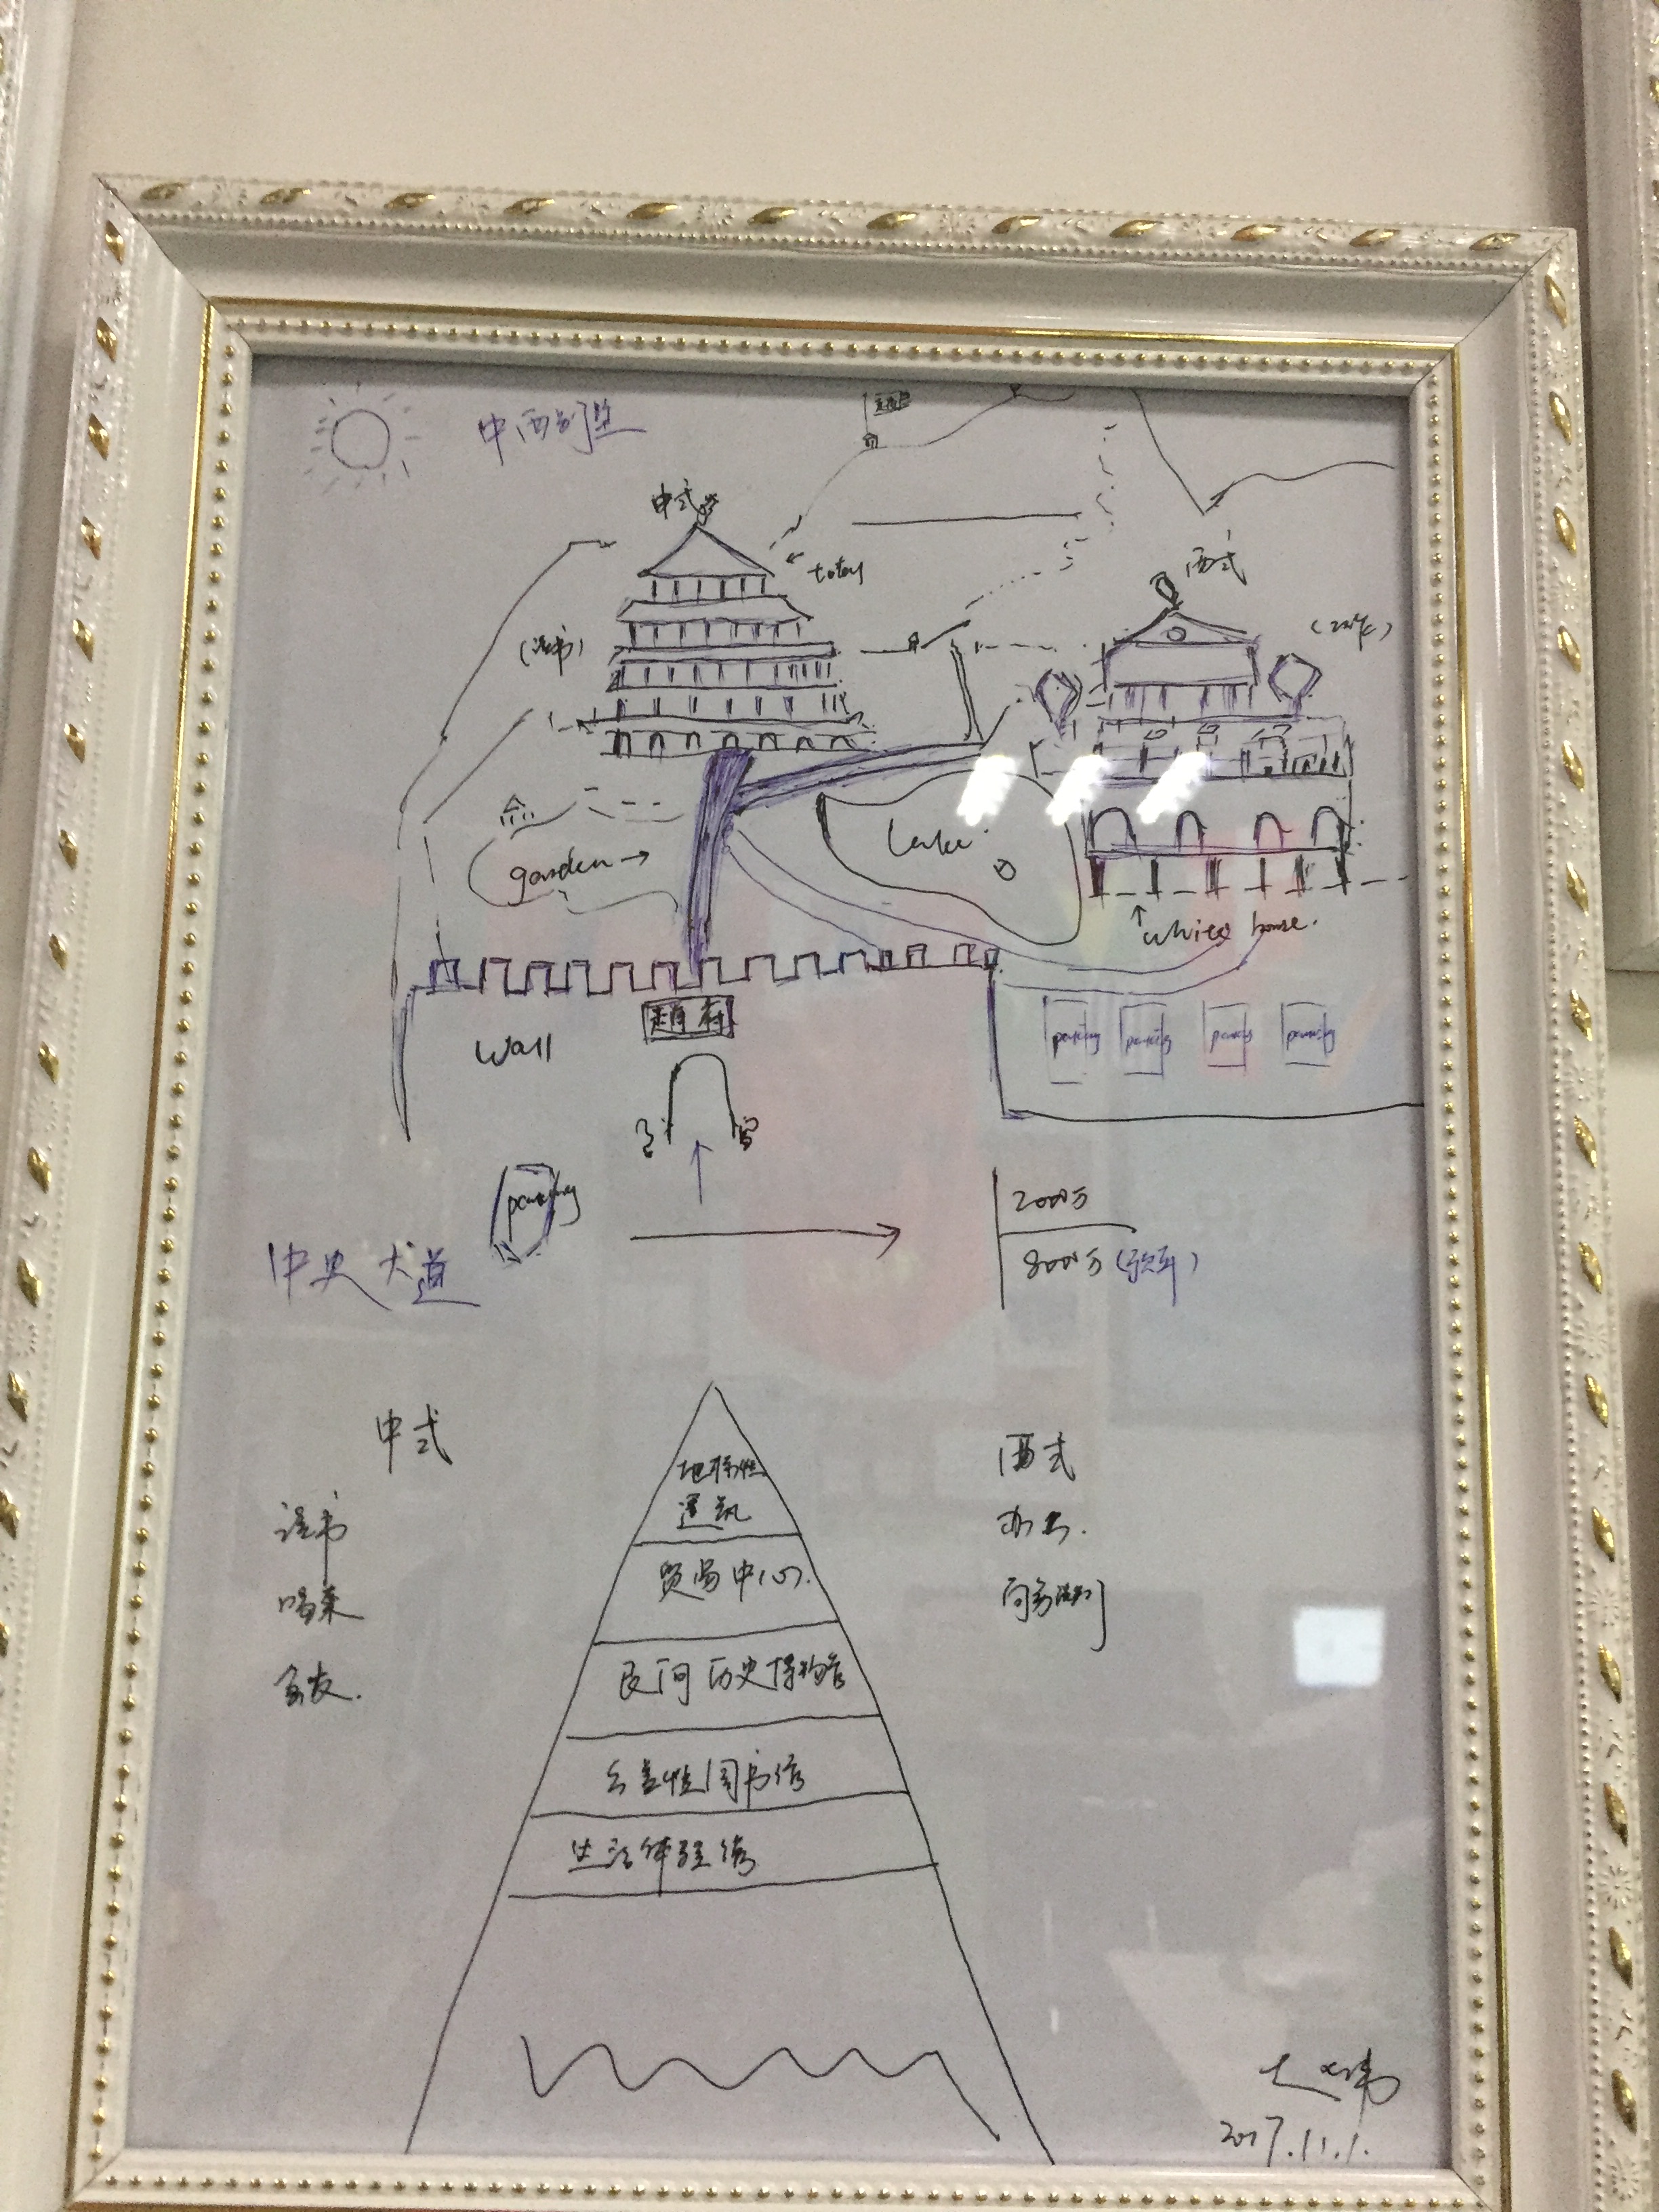 中西别墅
中式
西式
(读书)
garden
Lake
white house.
赵府
wall
parking parking parking parking
parking
2000万
中央大道
8000万
中式
西式
地标性
建筑
读书
办公.
贸易中心.
喝茶
商务谈判
民间历史博物馆
会友.
公益性图书馆
生活体验馆
2017.11.1.